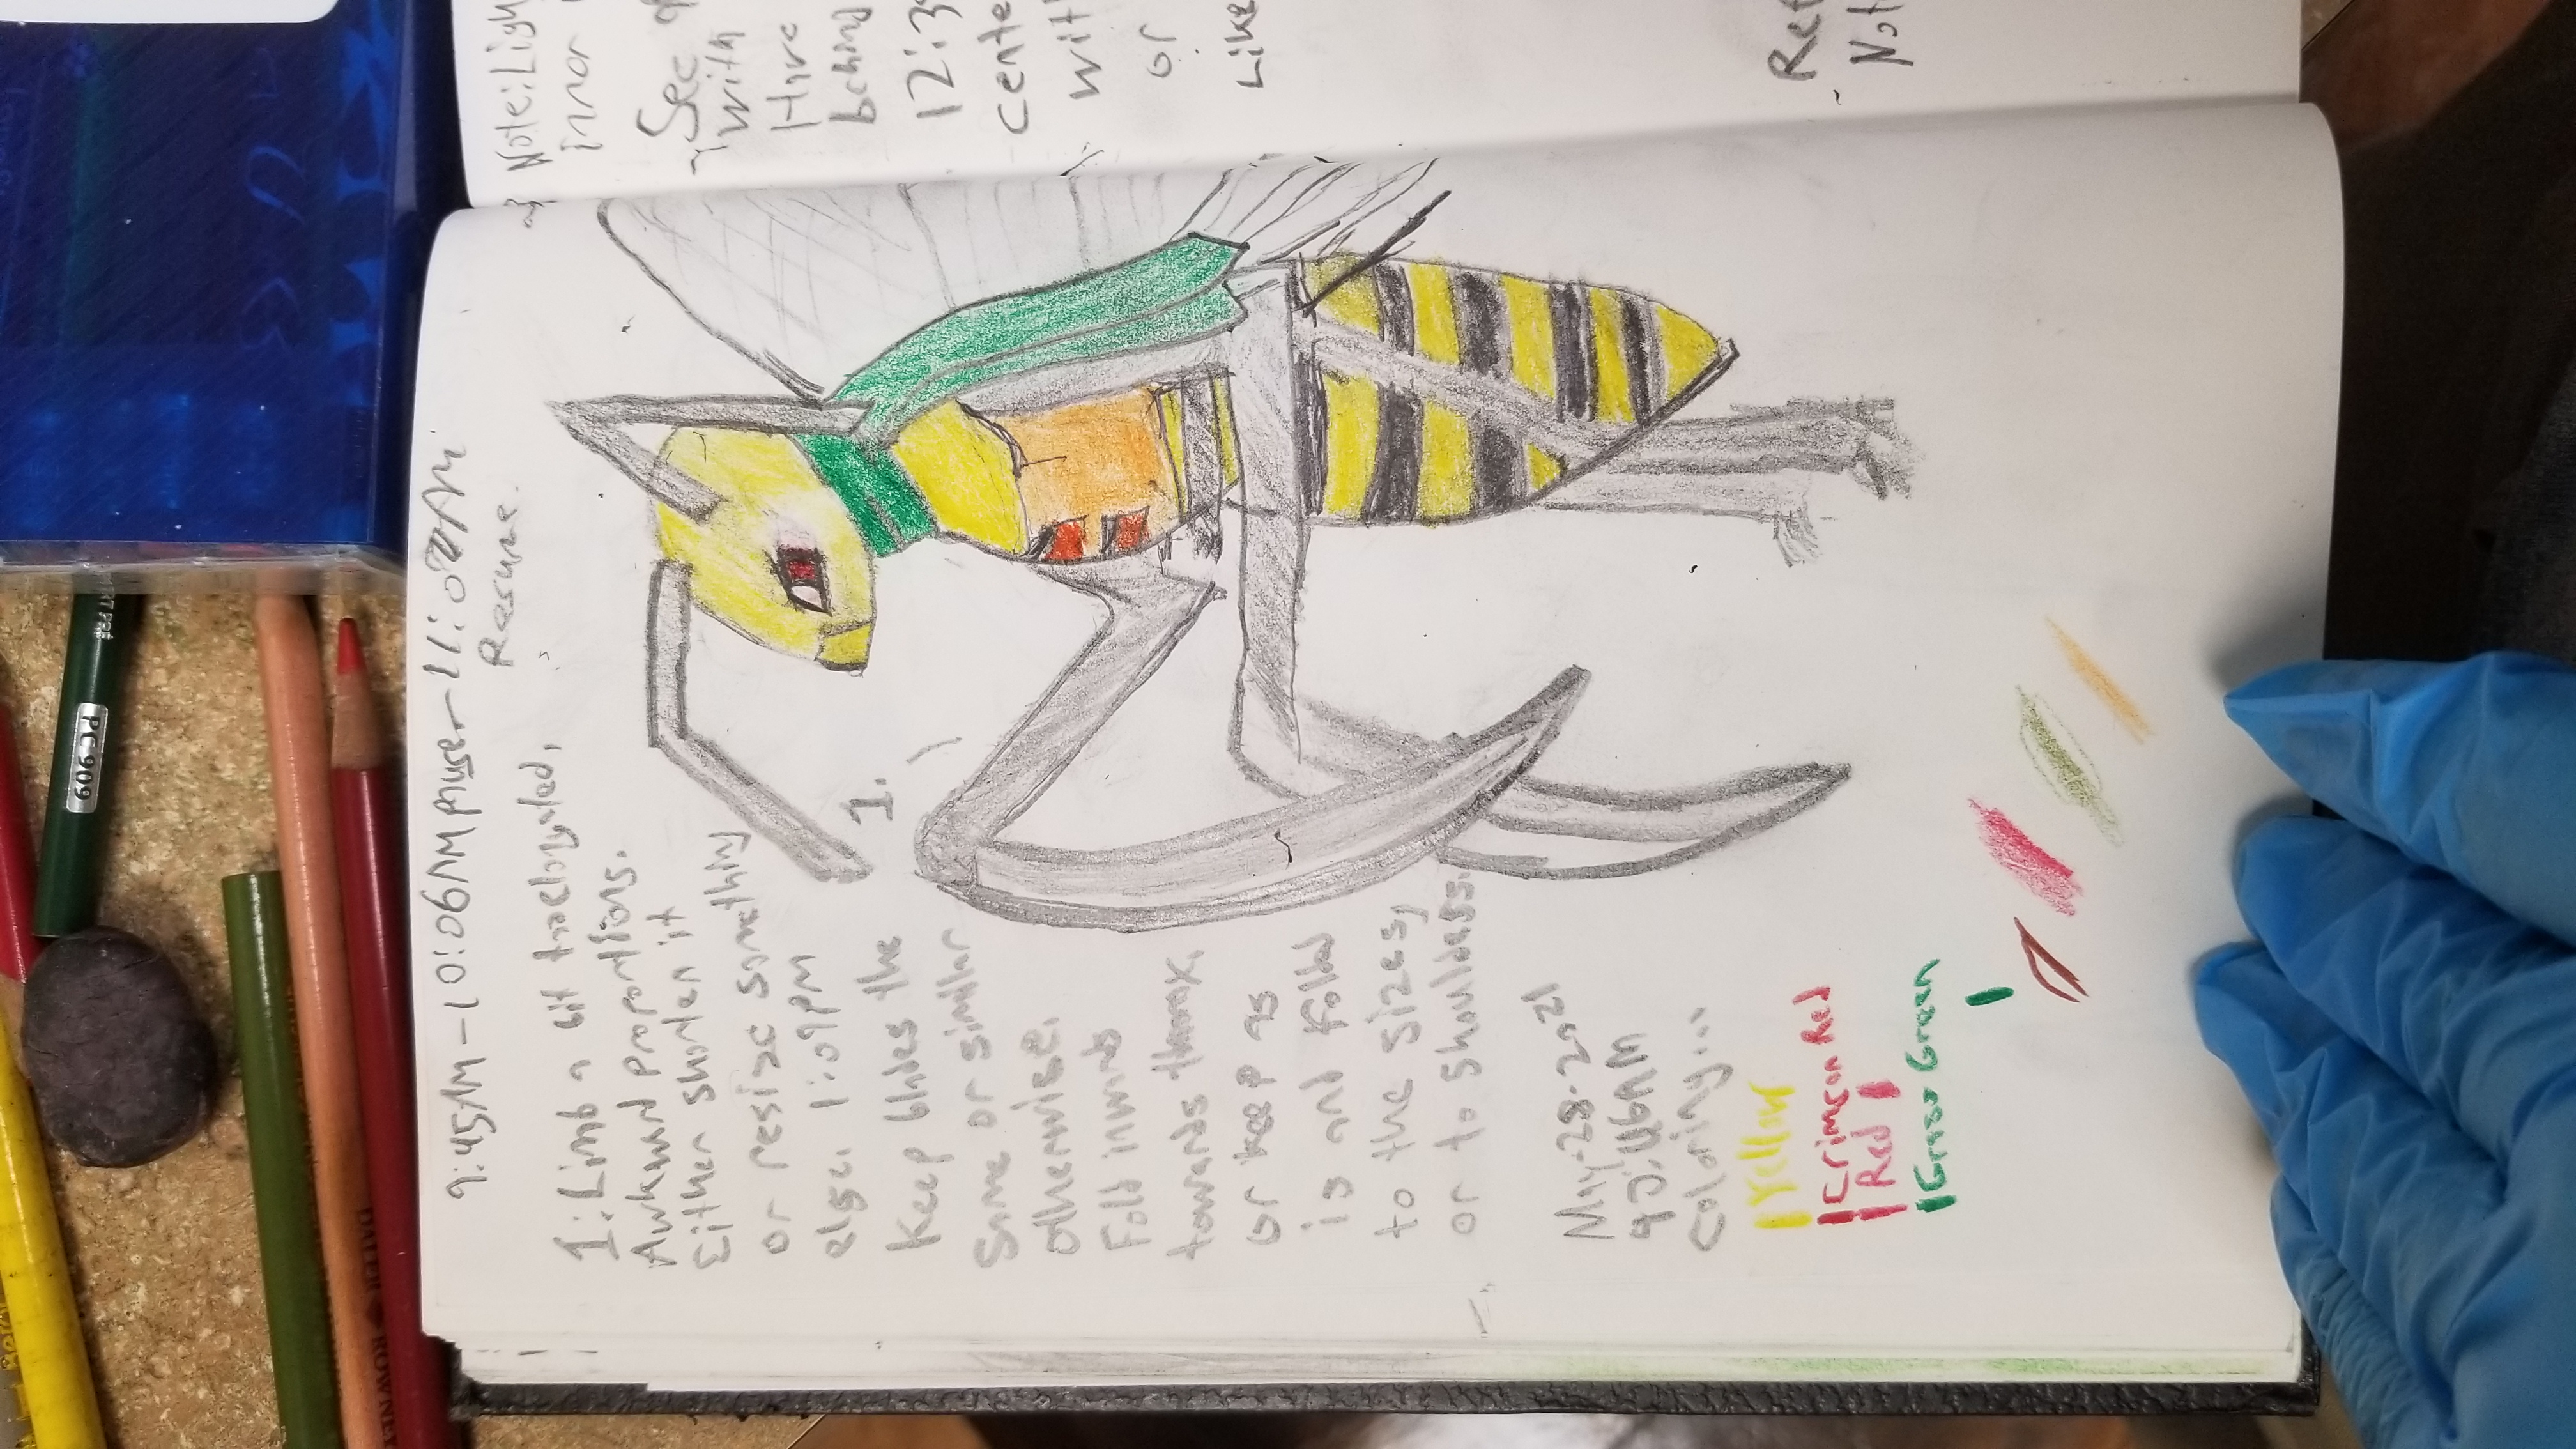 9:45AM-10:06AM pause-11:02AM
Resume.
1: Limb a bit too elongated,
Awkward proportions.
Either shorten it
or resize something
else. 1:09PM
Keep blades the
Same or similar
otherwise.
Fold inwards
towards thorax,
or keep as
is and fold
to the sides,
or to shoulders.
1.
May-28-2021
9:46AM
coloring...
Yellow
Crimson Red
Red
Grass Green
Note: Ligh
inner
See
with
Have
behind
12:3
cente
with
or
Like
- Ref
Not
PC909